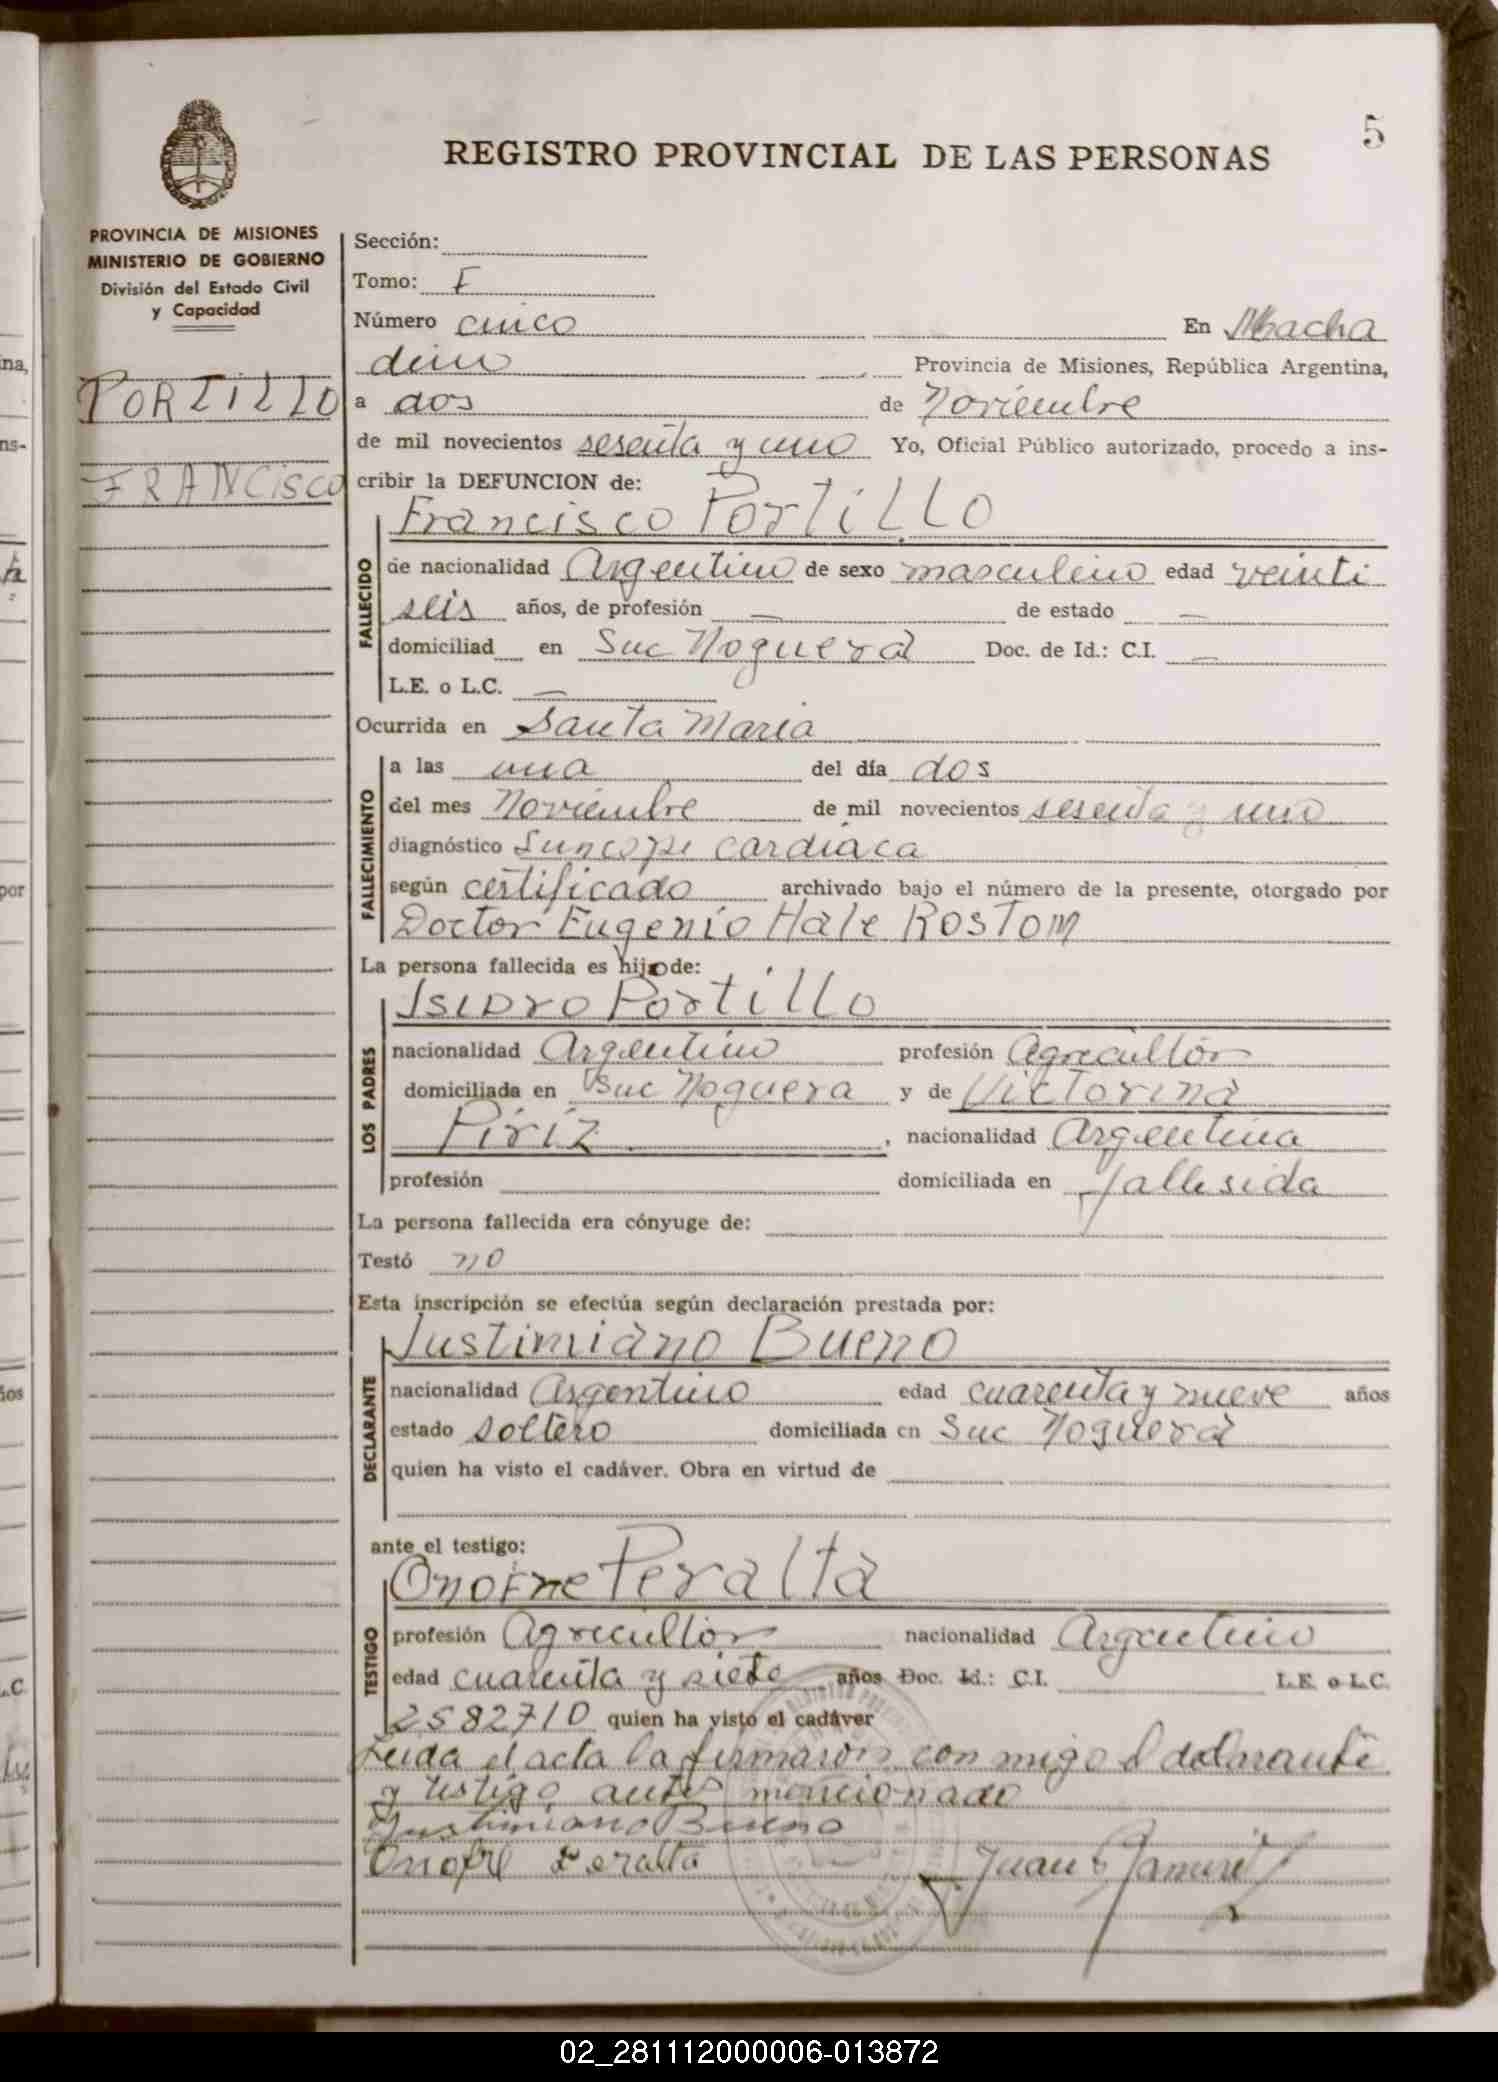 5
REGISTRO PROVINCIAL DE LAS PERSONAS
PROVINCIA DE MISIONES
MINISTERIO DE GOBIERNO
División del Estado Civil
y Capacidad
PORTILLO
FRANCISCO
Sección:
Tomo: F
Número cinco En Mbacha
dino Provincia de Misiones, República Argentina,
a dos de Noviembre
de mil novecientos sesenta y uno Yo, Oficial Público autorizado, procedo a ins-
cribir la DEFUNCION de:
Francisco Portillo
FALLECIDO
de nacionalidad Argentino de sexo masculino edad veinti
seis años, de profesión — de estado —
domiciliad en Suc Noguera Doc. de Id.: C.I. —
L.E. o L.C. —
Ocurrida en Santa Maria
FALLECIMIENTO
a las una del día dos
del mes Noviembre de mil novecientos sesenta y uno
diagnóstico Suncopi cardiaca
según certificado archivado bajo el número de la presente, otorgado por
Doctor Eugenio Hale Rostom
La persona fallecida es hijo de:
Isidro Portillo
LOS PADRES
nacionalidad Argentino profesión Agricultor
domiciliada en Suc Noguera y de Victorina
Piriz, nacionalidad Argentina
profesión domiciliada en fallesida
La persona fallecida era cónyuge de:
Testó no
Esta inscripción se efectúa según declaración prestada por:
Justimiano Bueno
DECLARANTE
nacionalidad Argentino edad cuarenta y nueve años
estado soltero domiciliada en Suc Noguera
quien ha visto el cadáver. Obra en virtud de
ante el testigo:
Onofre Peralta
TESTIGO
profesión Agricultor nacionalidad Argentino
edad cuarenta y siete años Doc. Id.: C.I. L.E. o L.C.
2582710 quien ha visto el cadáver
Leida el acta la firmaron con migo el declarante
y testigo antes mencionado
Justimiano Bueno
Onofre Peralta Juan
02_281112000006-013872